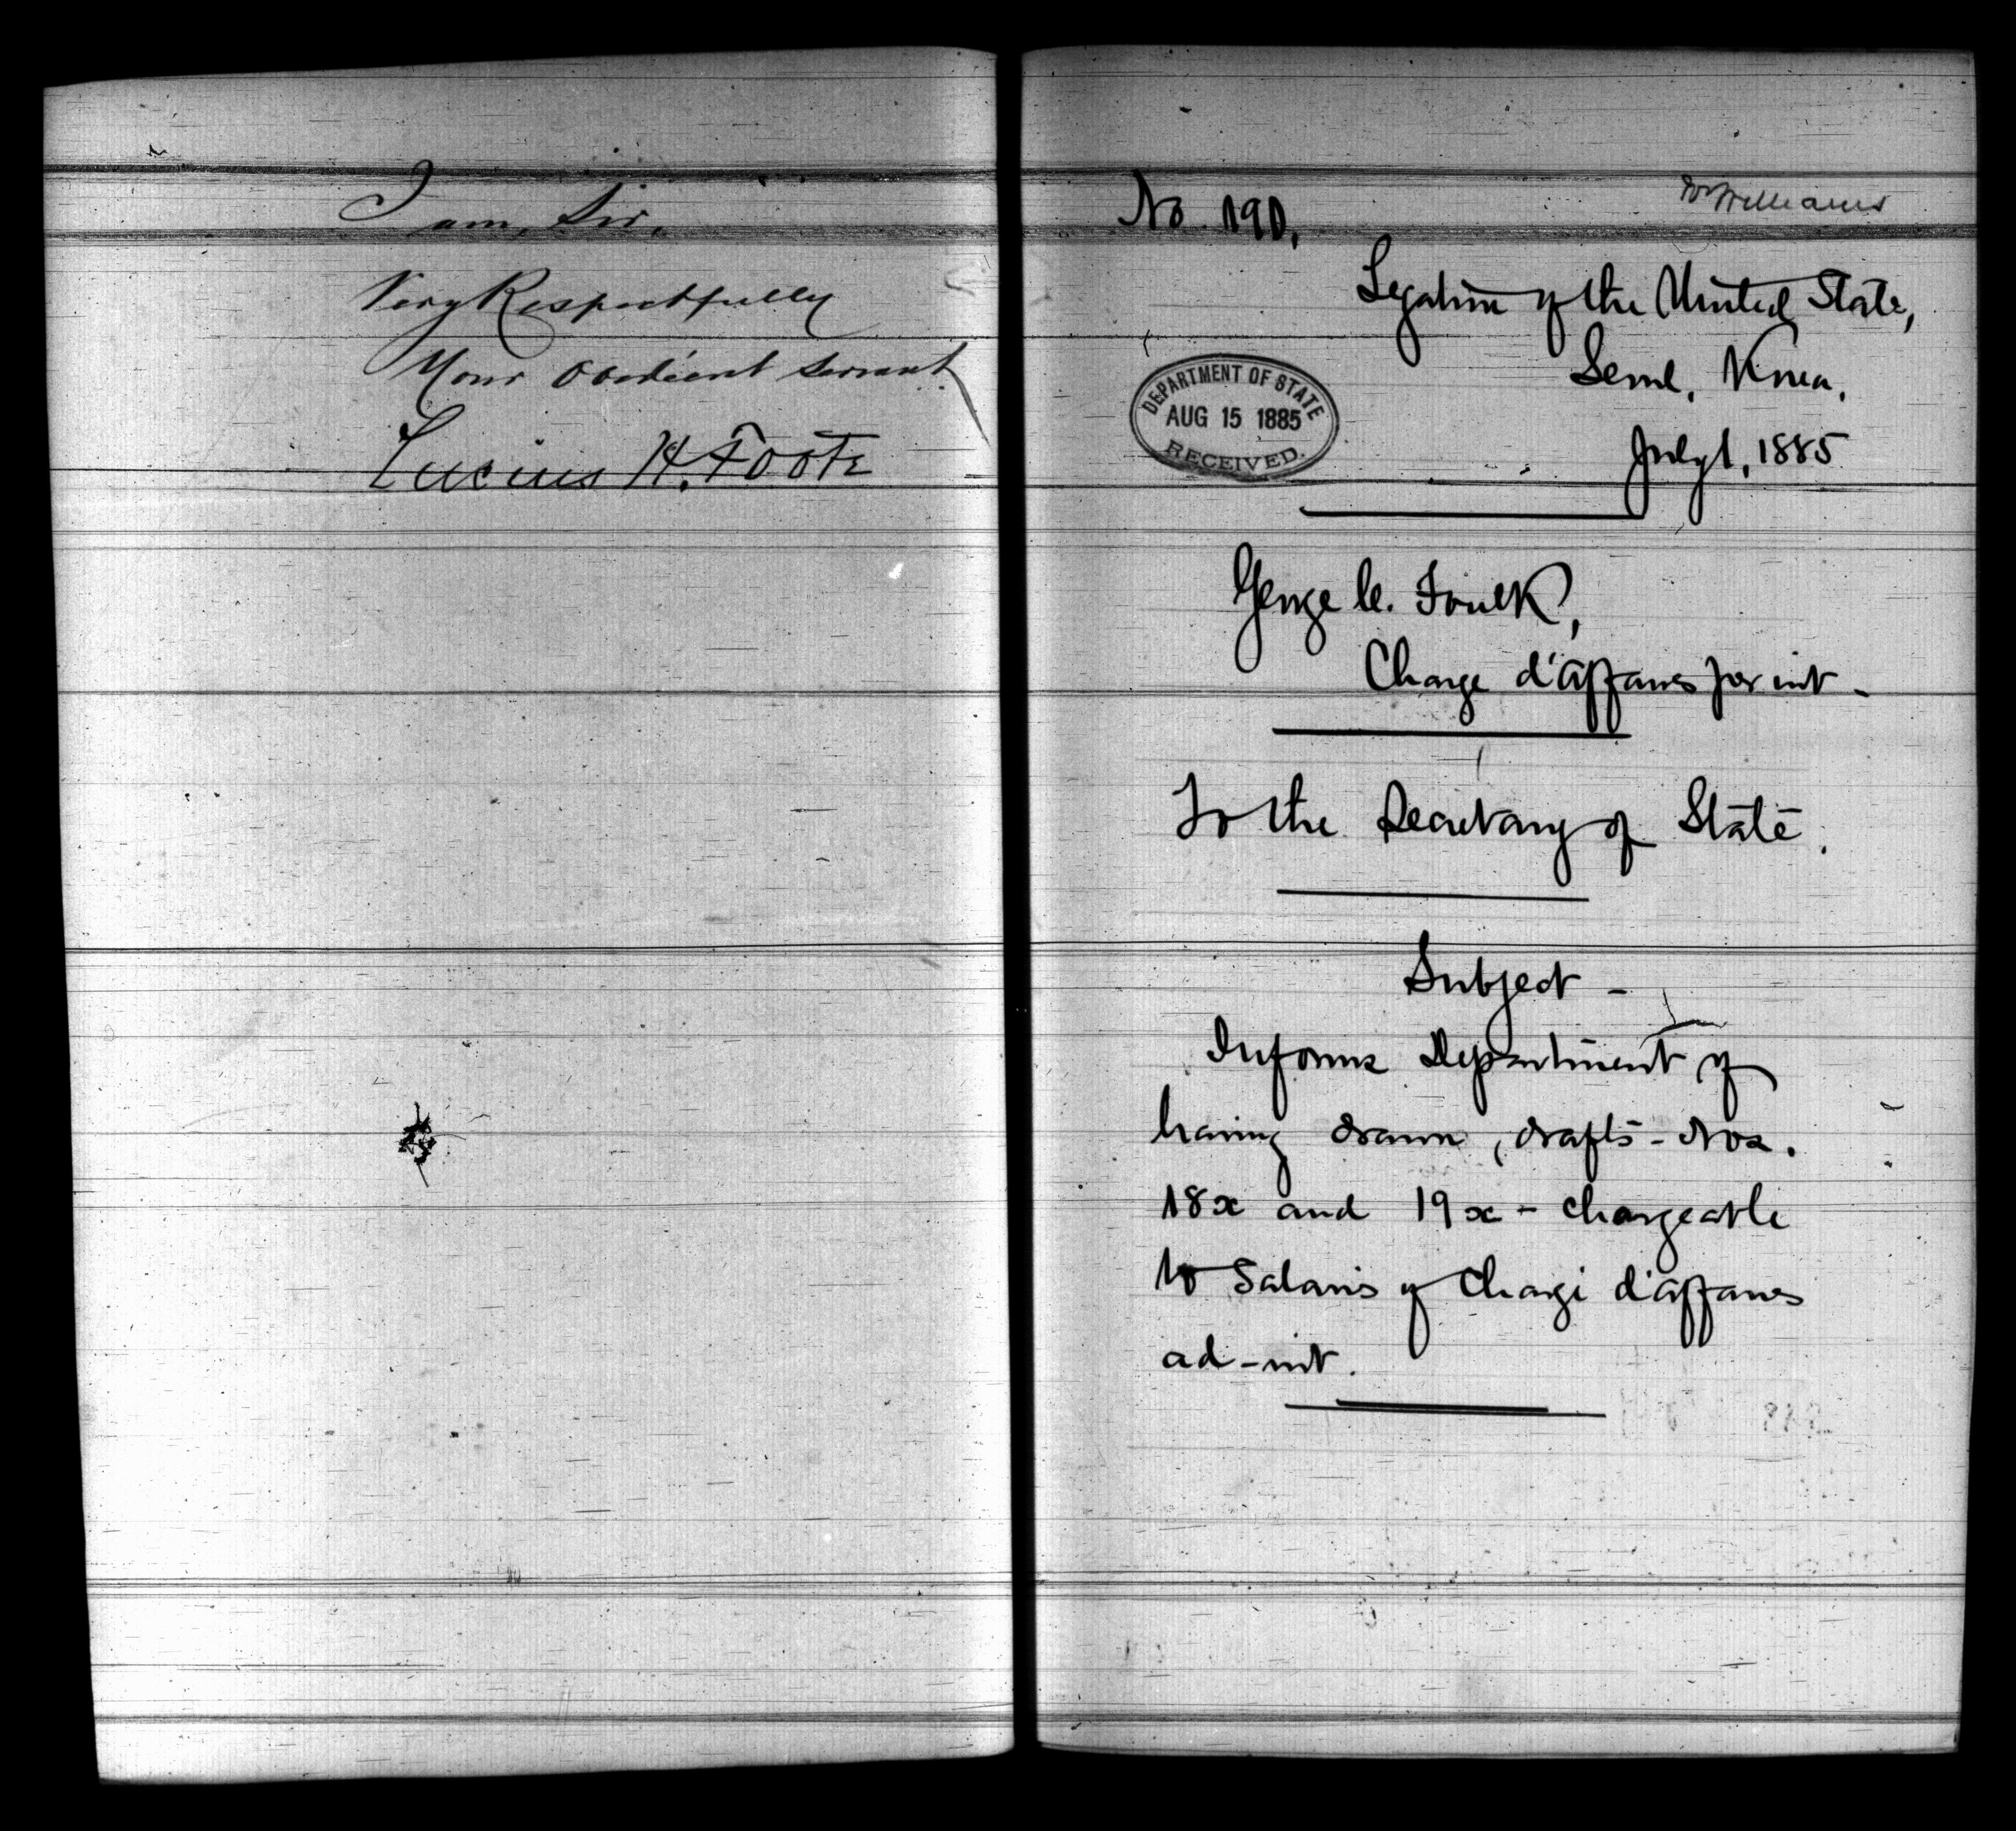 I am, Sir,
Very Respectfully
Your obedient servant
Lucius H. Foote
No. 190.
Mr Williams
Legation of the United States,
Seoul, Korea,
July 1, 1885
DEPARTMENT OF STATE
AUG 15 1885
RECEIVED.
George C. Foulk,
Charge d'affaires
To the Secretary of State.
Subject -
Informs Department of
having drawn, drafts - Nos.
18x and 19x - chargeable
to Salaries of Chargé d'affaires
ad-int.